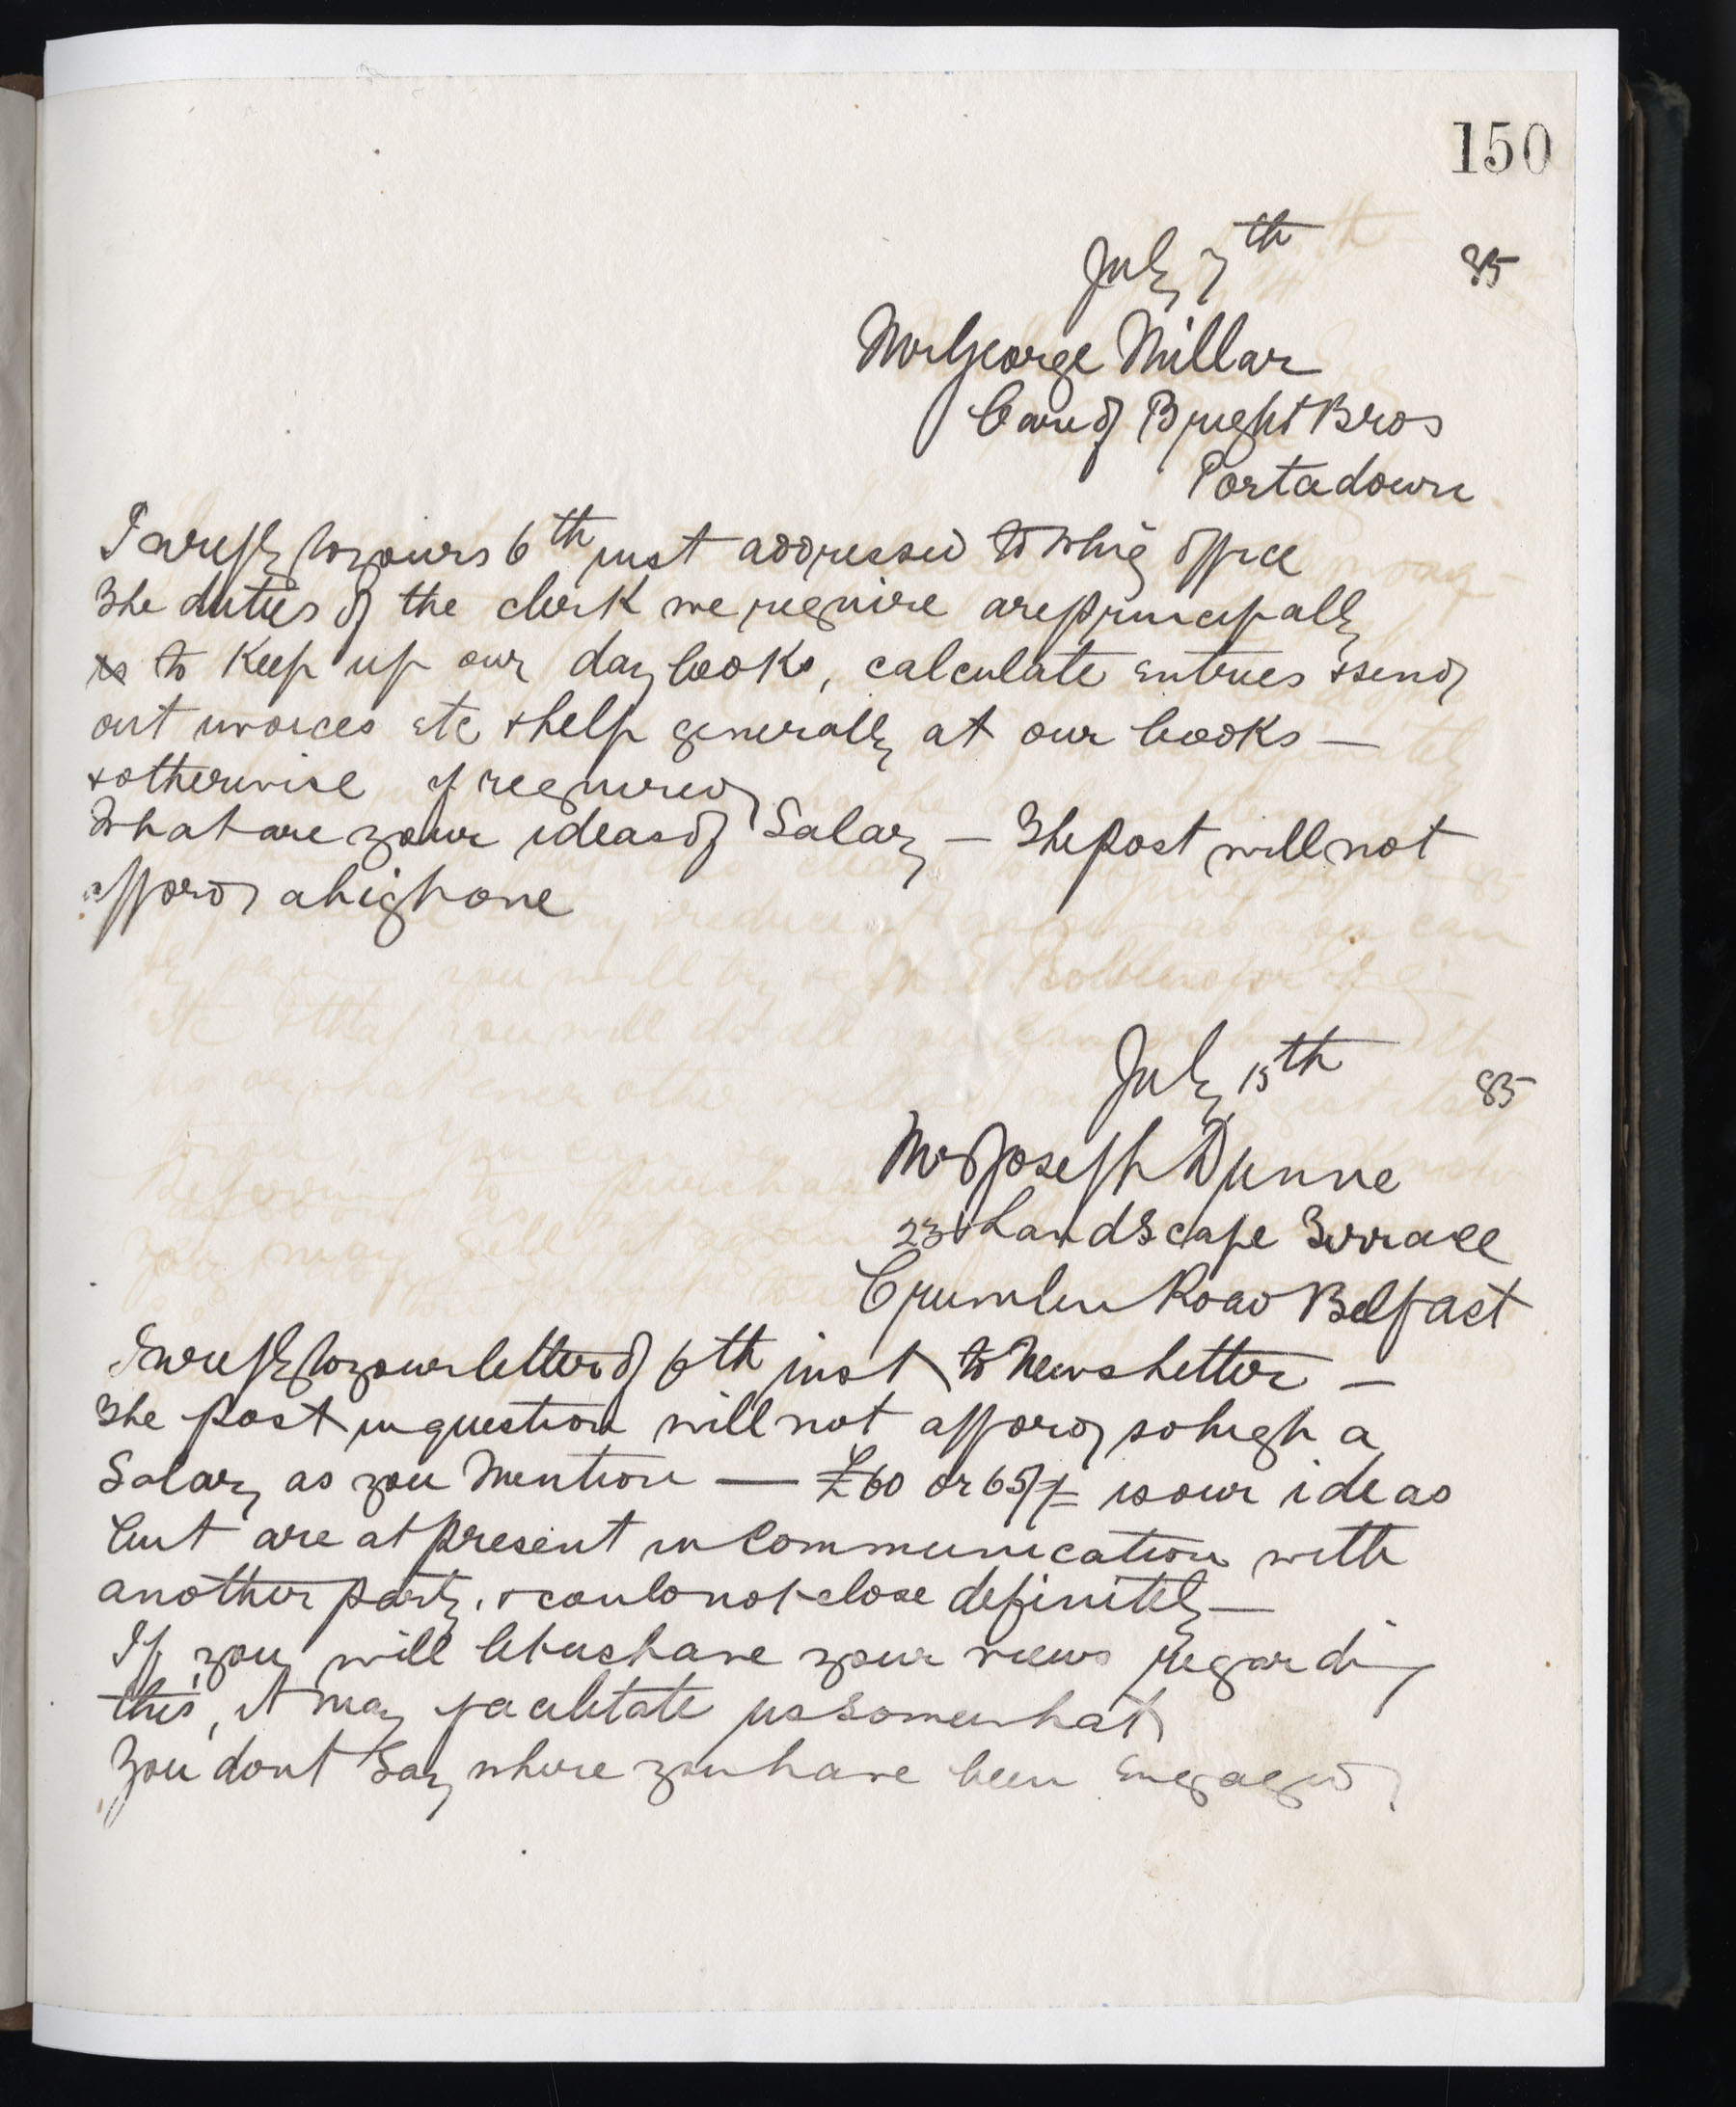 150
July 7th 85
Mr George Millar
Care of Bright Bros
Portadown
In reply to yours 6th inst addressed to Whig office
The duties of the clerk we require are principally
to Keep up our day books, calculate entries & send
out invoices etc & help generally at our books —
& otherwise if required
What are your ideas of Salary — The post will not
afford a high one
July 15th 85
Mr Joseph Dunne
23 Landscape Terrace
Crumlin Road Belfast
In reply to your letter of 6th inst to News Letter —
The post in question will not afford so high a
Salary as you Mention — £60 or 65 is our ideas
but are at present in Communication with
another party. & could not close definitely —
If you will let us have your views regarding
this, it may facilitate us somewhat
You dont Say where you have been Engaged